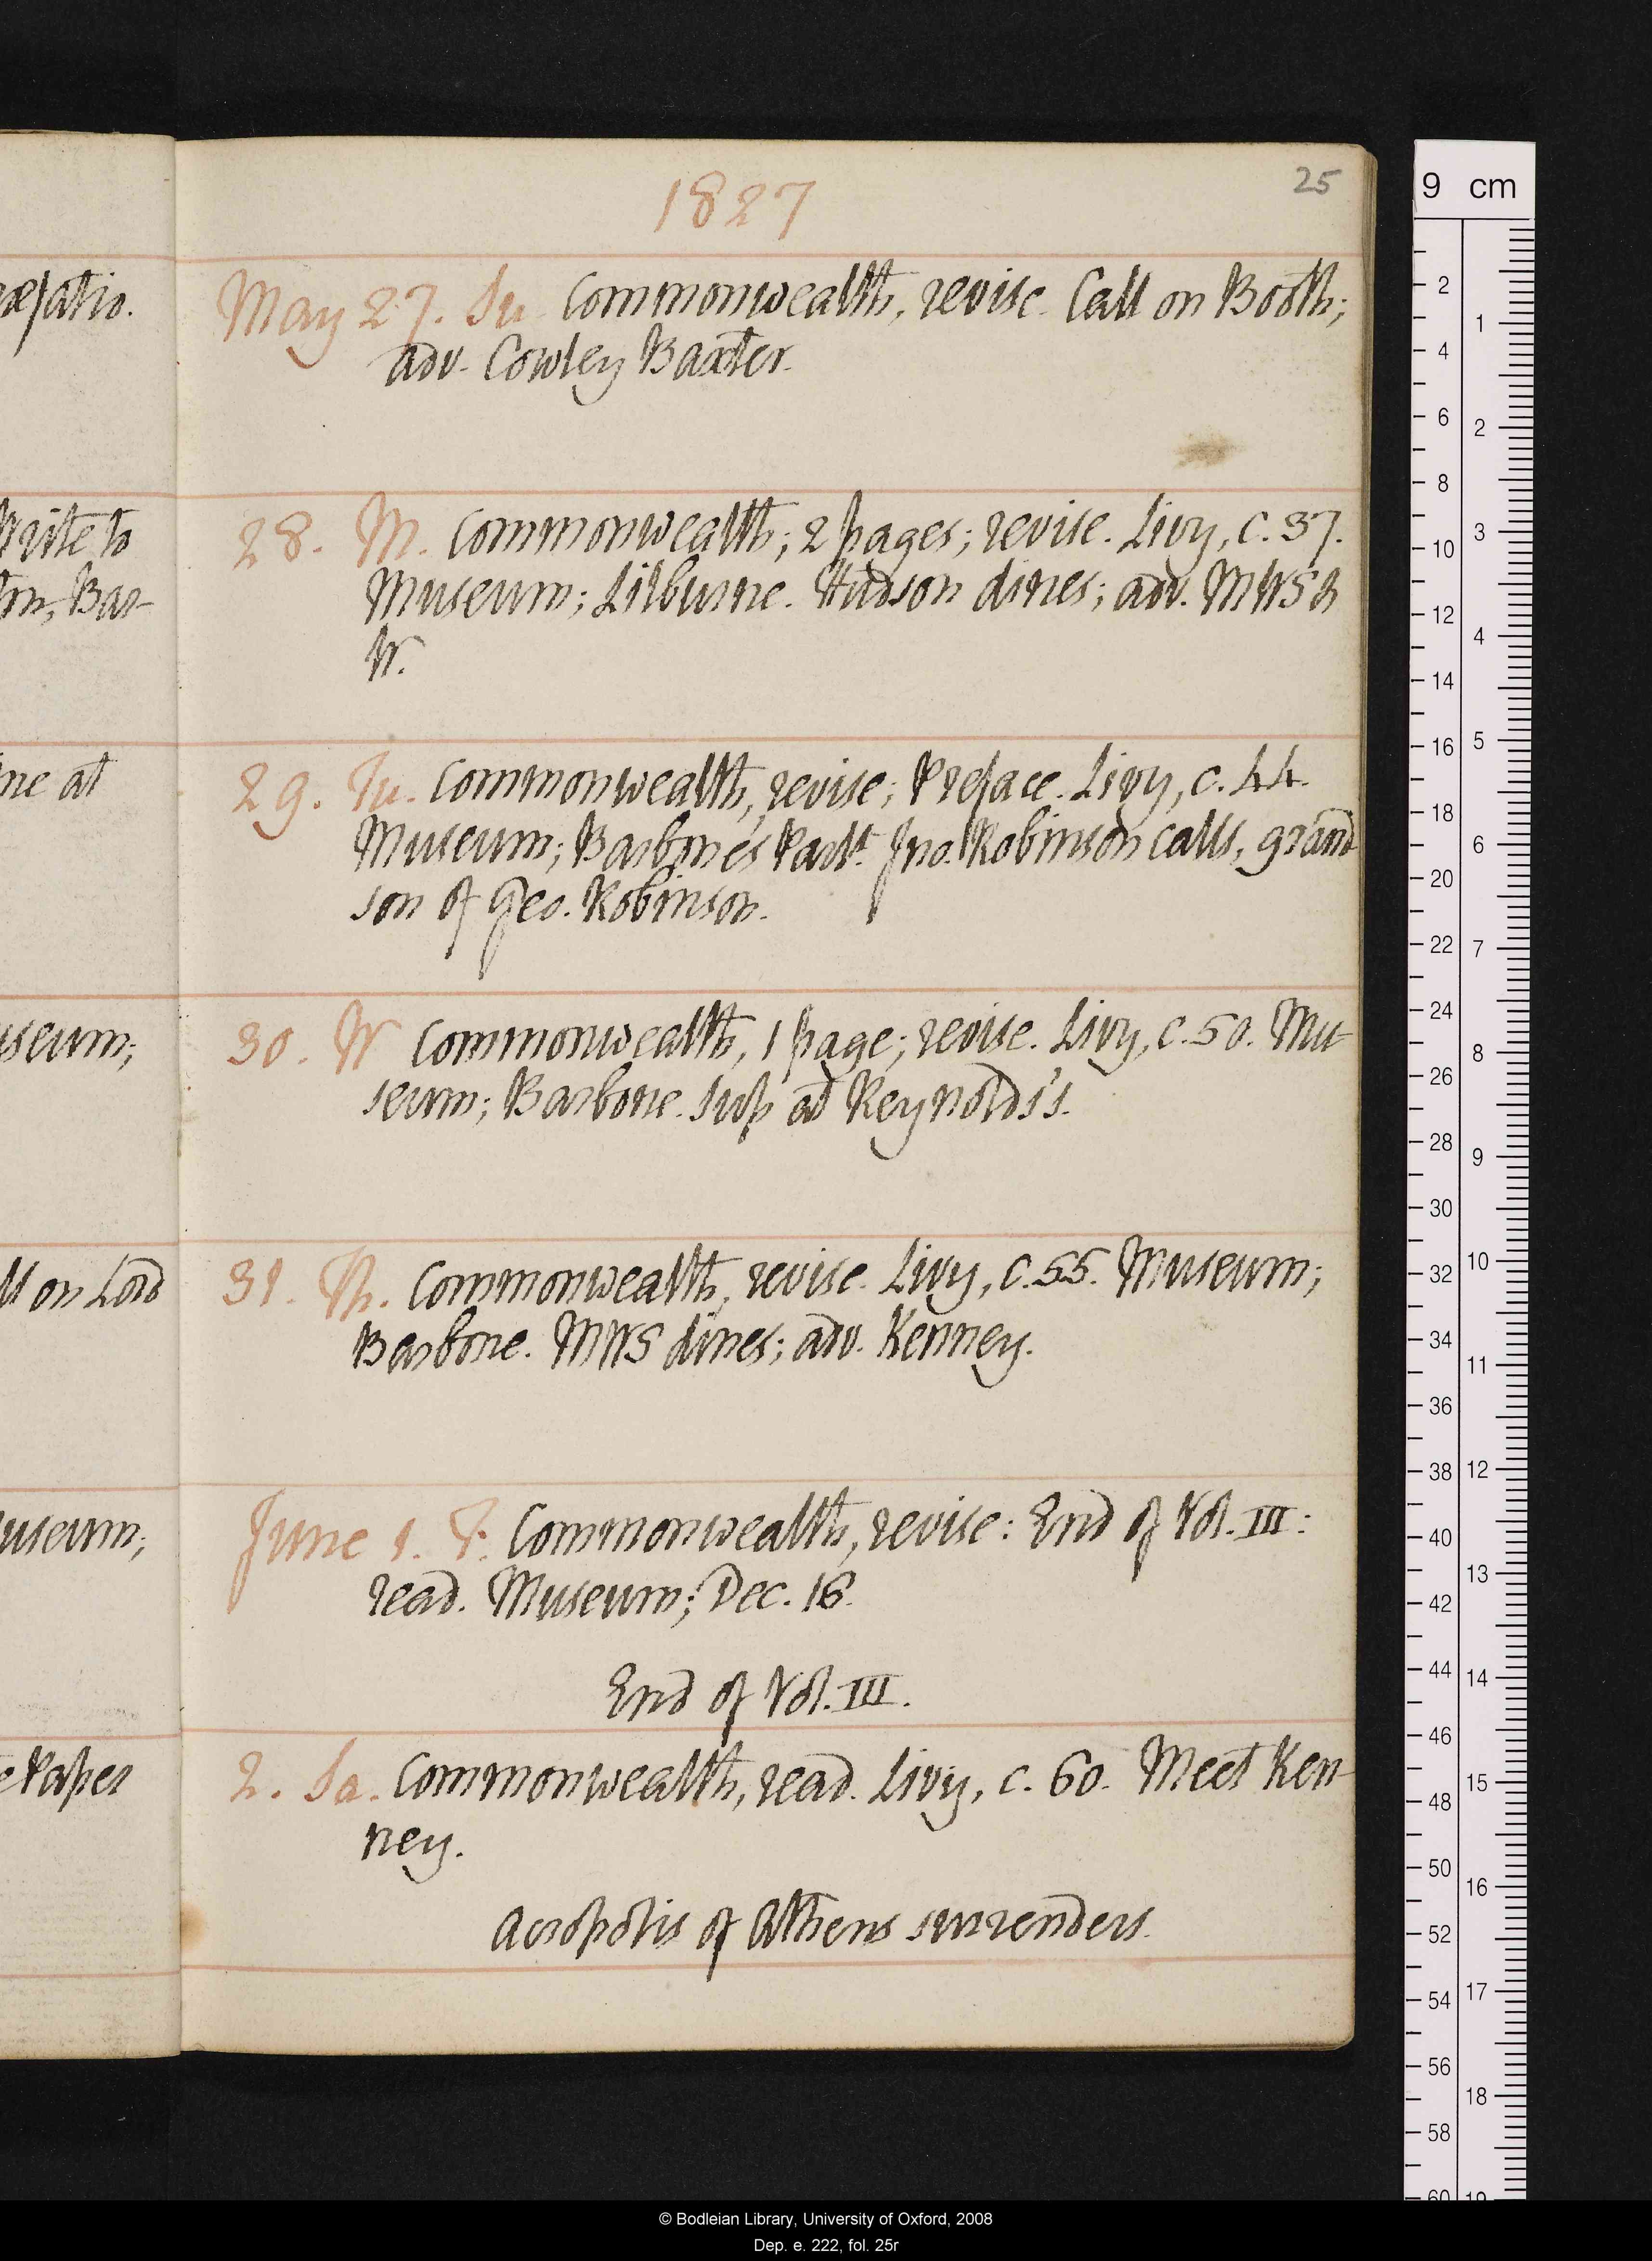 25
1827
May 27. Su. Commonwealth, revise. Call on Booth;
adv. Cowley Baxter.
28. M. Commonwealth; 2 pages; revise. Livy, c. 37.
Museum; Lilburne. Hudson dines; adv. MWS &
W.
29. Tu. Commonwealth, revise; Preface. Livy, c. 44.
Museum; Barbone's Parlt. Jno. Robinson calls, grand
son of Geo. Robinson.
30. W Commonwealth, 1 page; revise. Livy, c. 50. Mu-
seum; Barbone. Sup at Reynolds's.
31. Th. Commonwealth, revise. Livy, c. 55. Museum;
Barbone. MWS dines; adv. Kenney.
June 1. F. Commonwealth, revise: End of Vol. III:
read. Museum; Dec. 16.
End of Vol. III.
2. Sa. Commonwealth, read. Livy, c. 60. Meet Ken-
ney.
Acropolis of Athens surrenders.
Write to
Bar-
me at
useum;
ll on Lord
useum;
Paper
9 cm
2
4
6
8
10
12
14
16
18
20
22
24
26
28
30
32
34
36
38
40
42
44
46
48
50
52
54
56
58
60
1
2
3
4
5
6
7
8
9
10
11
12
13
14
15
16
17
18
19
© Bodleian Library, University of Oxford, 2008
Dep. e. 222, fol. 25r